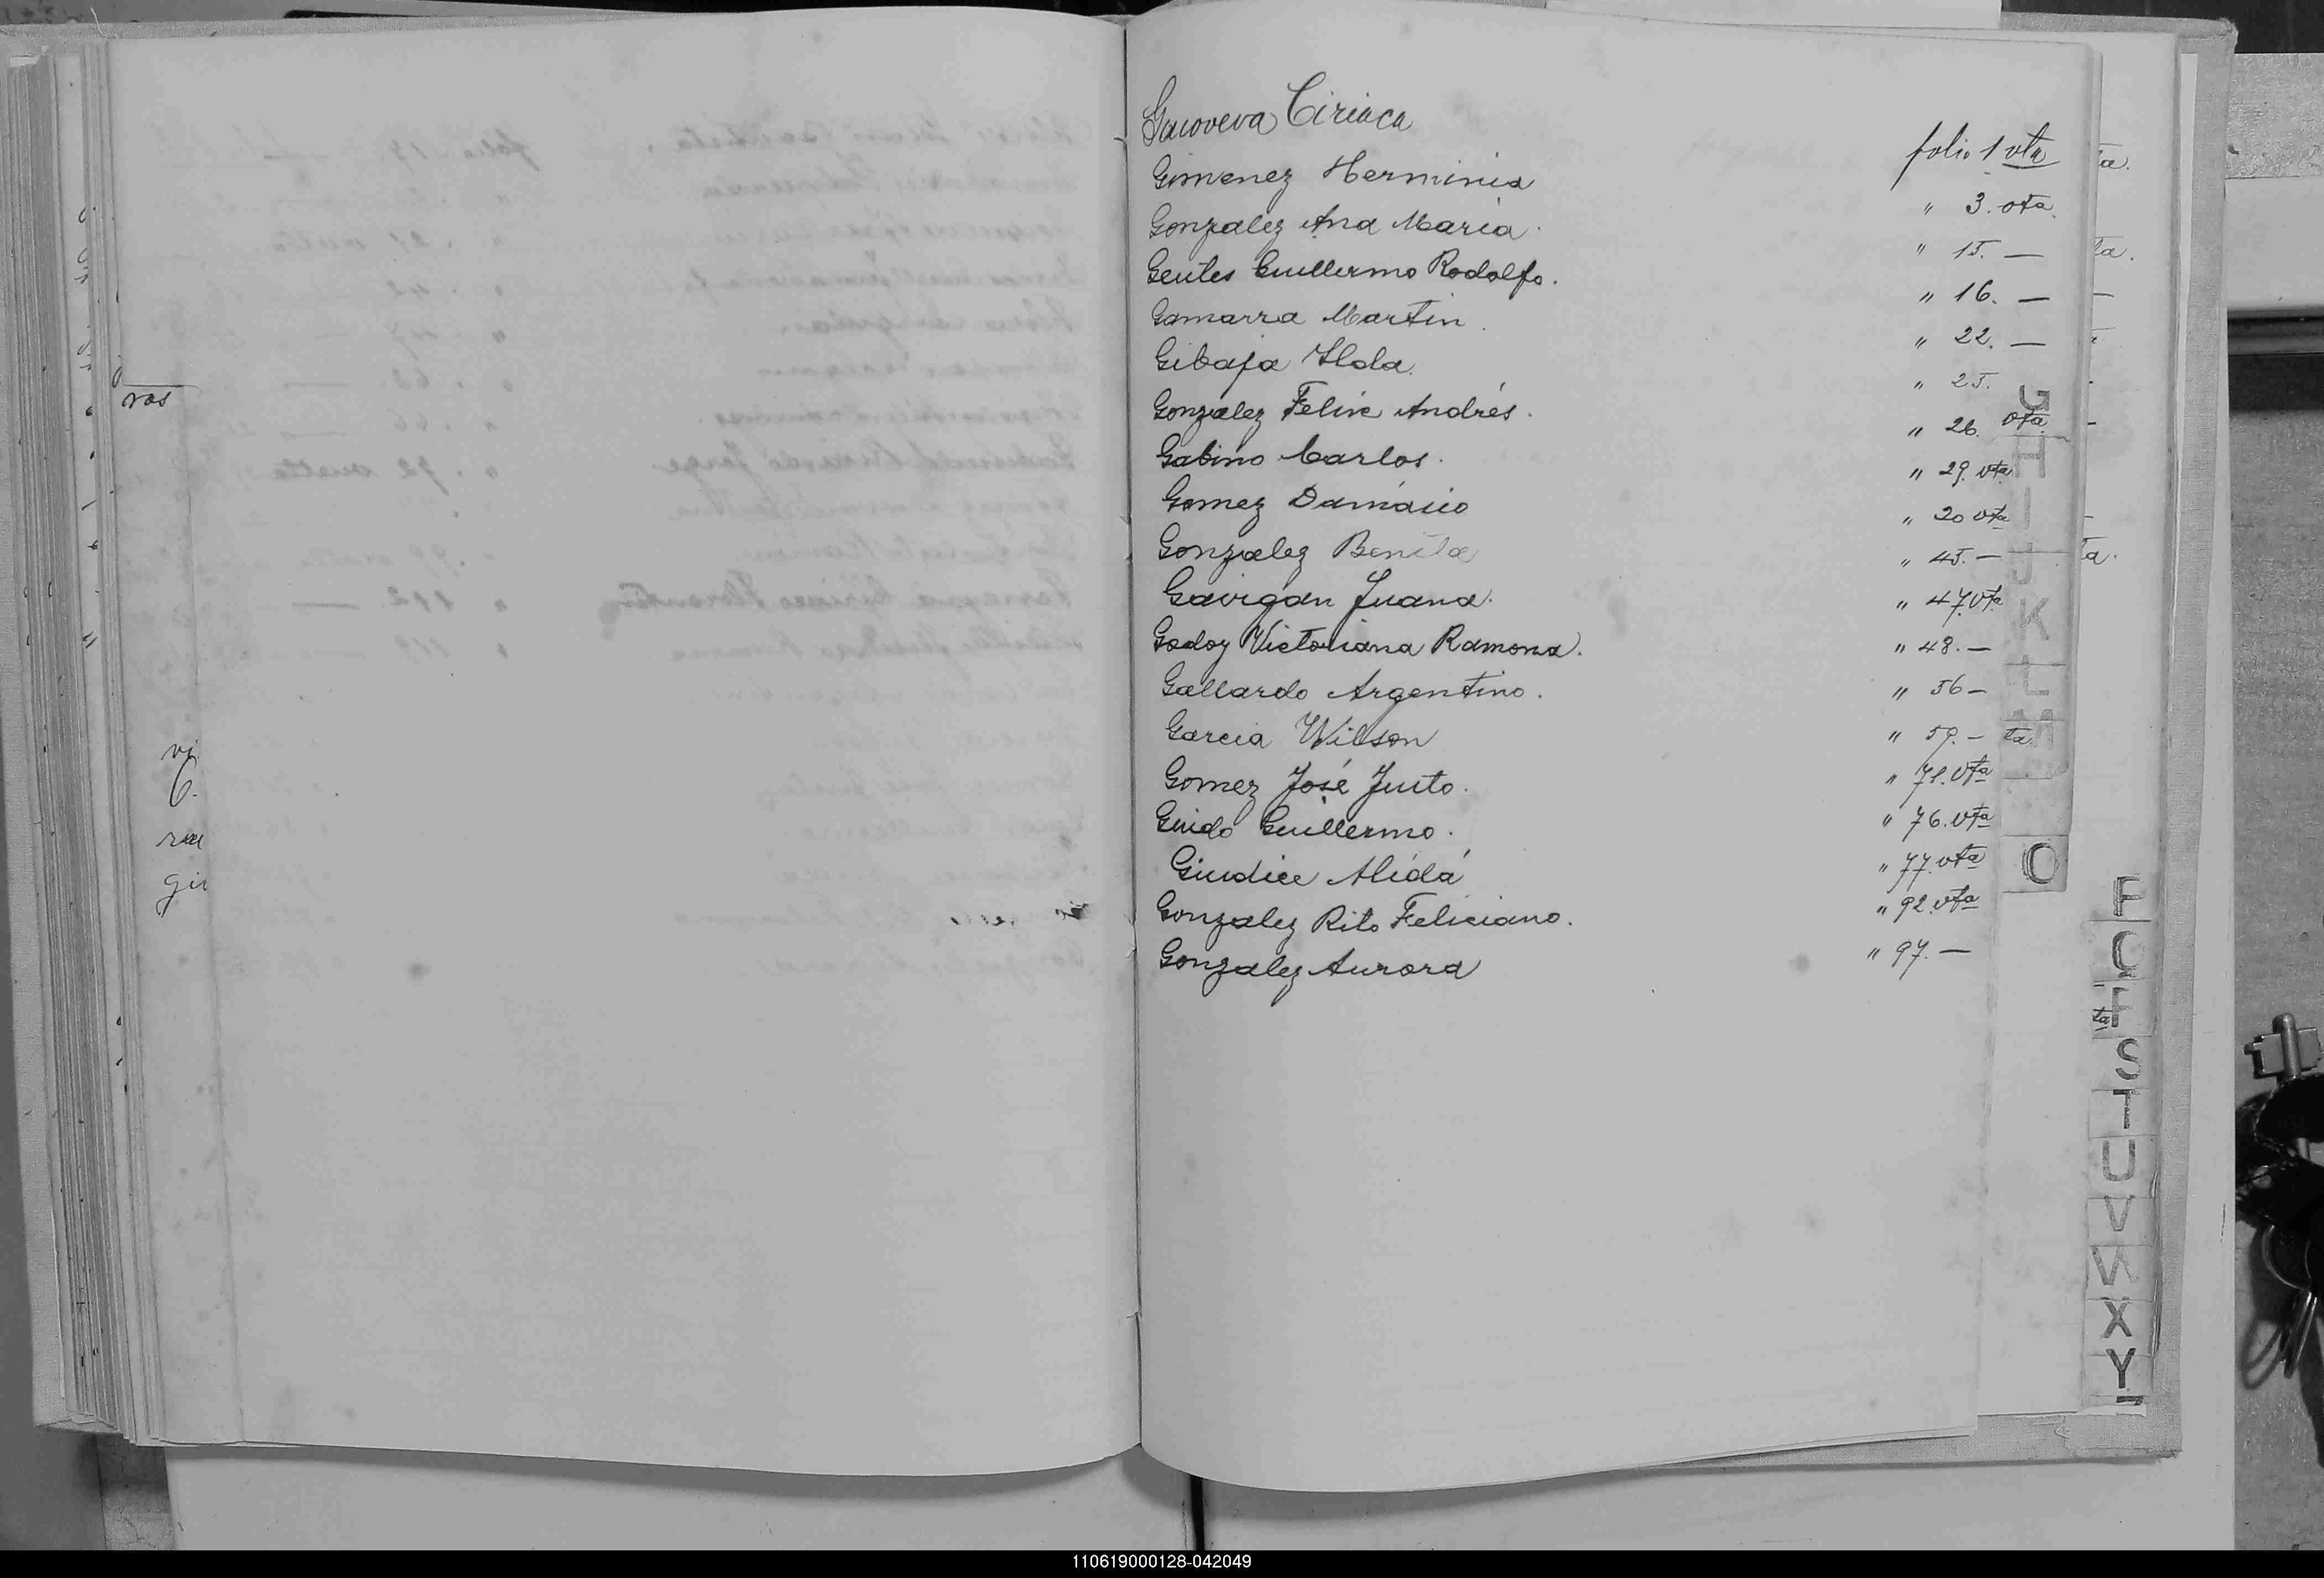 Genoveva Ciriaca folio 1 vta
Gimenez Herminia " 3. vta.
Gonzalez Ana Maria. " 15. —
Gentes Guillermo Rodolfo. " 16. —
Gamarra Martin. " 22. —
Gibaja Ilda. " 25.
Gonzalez Felix Andrés. " 26. vta
Gabino Carlos. " 29. vta
Gomez Damácio " 20 vta
Gonzalez Benita " 45. —
Gavigan Juana. " 47 vta
Godoy Victoriana Ramona. " 48. —
Gallardo Argentino. " 56 —
Garcia Wilson " 59. —
Gomez José Justo. " 71. vta
Guido Guillermo. " 76. vta
Giudice Alida " 77. vta
Gonzalez Rito Feliciano. " 92. vta
Gonzalez Aurora " 97. —
G
H
I
J
K
L
M
O
P
Q
R
S
T
U
V
W
X
Y
110619000128-042049